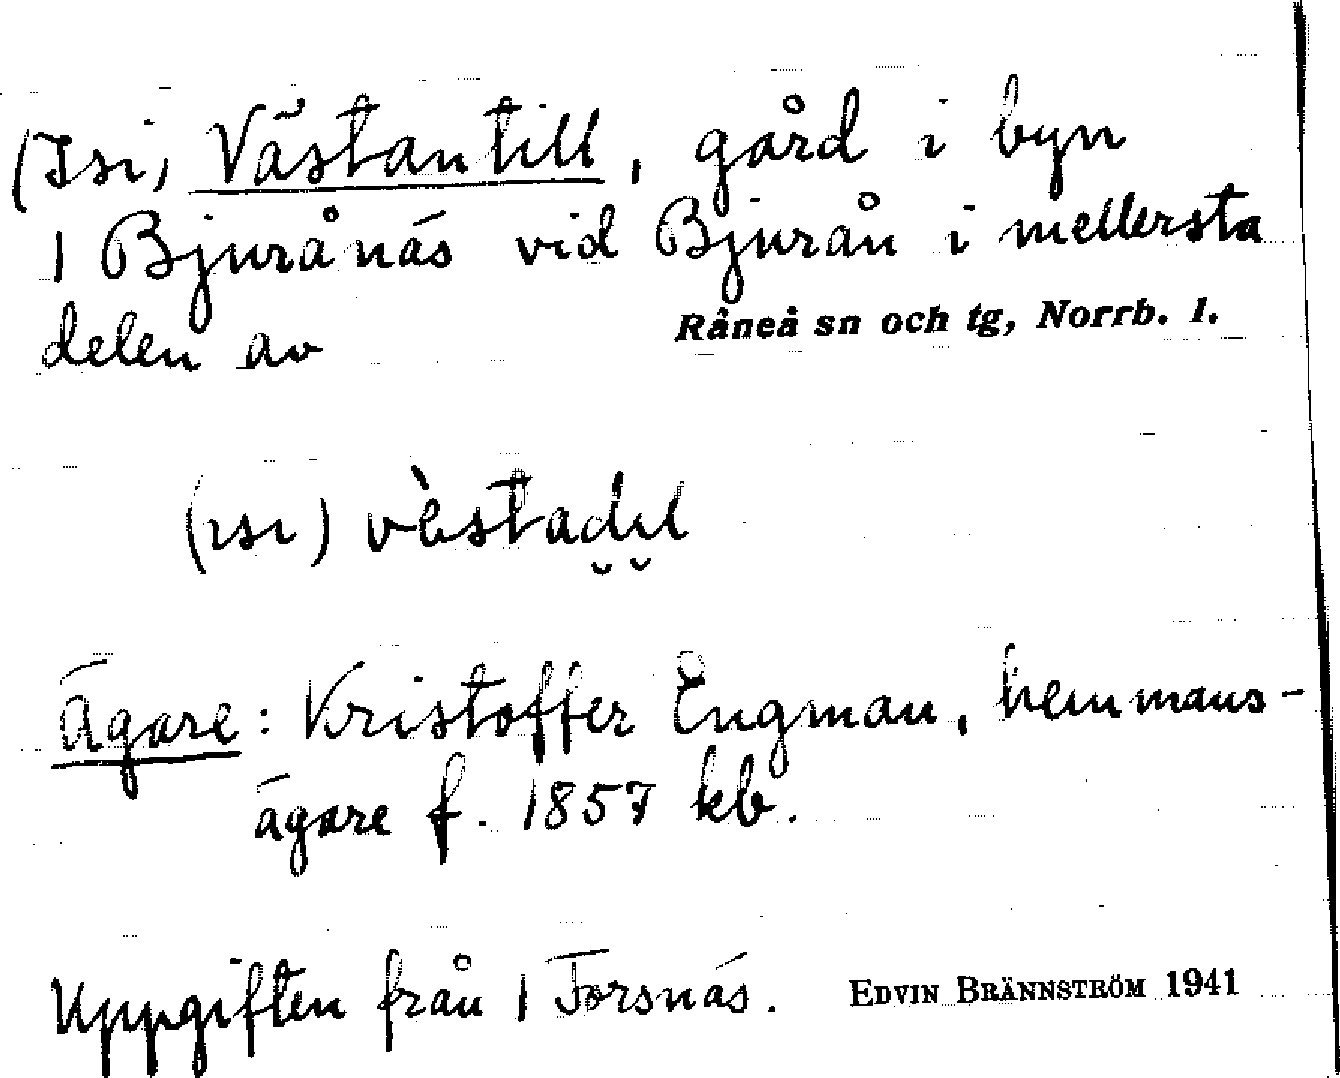 (Isi) Västantill, gård i byn
1 Bjurånäs vid Bjurån i mellersta
delen av Råneå sn och tg, Norrb. l.
(ısı) vèstadıl
Ägare: Kristoffer Engman, hemmans-
ägare f. 1857 kb.
Uppgiften från 1 Forsnäs. EDVIN BRÄNNSTRÖM 1941